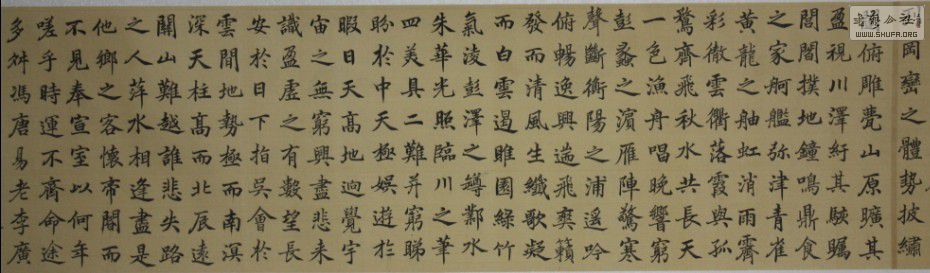 岡巒之體勢披繡
俯雕甍山原曠其
盈視川澤紆其駭矚
閭閻撲地鐘鳴鼎食
之家舸艦弥津青雀
黃龍之舳虹消雨霽
彩徹雲衢落霞與孤
鶩齊飛秋水共長天
一色漁舟唱晚響窮
彭蠡之濱雁陣驚寒
聲斷衡陽之浦遙吟
俯暢逸興遄飛爽籟
發而清風生纖歌凝
而白雲遏睢園綠竹
氣淩彭澤之樽鄴水
朱華光照臨川之筆
四美具二難并窮睇
眄於中天極娛遊於
暇日天高地迥覺宇
宙之無窮興盡悲來
識盈虛之有數望長
安於日下指吳會於
雲間地勢極而南溟
深天柱高而北辰遠
關山難越誰悲失路
之人萍水相逢盡是
他鄉之客懷帝閽而
不見奉宣室以何年
嗟乎時運不齊命途
多舛馮唐易老李廣